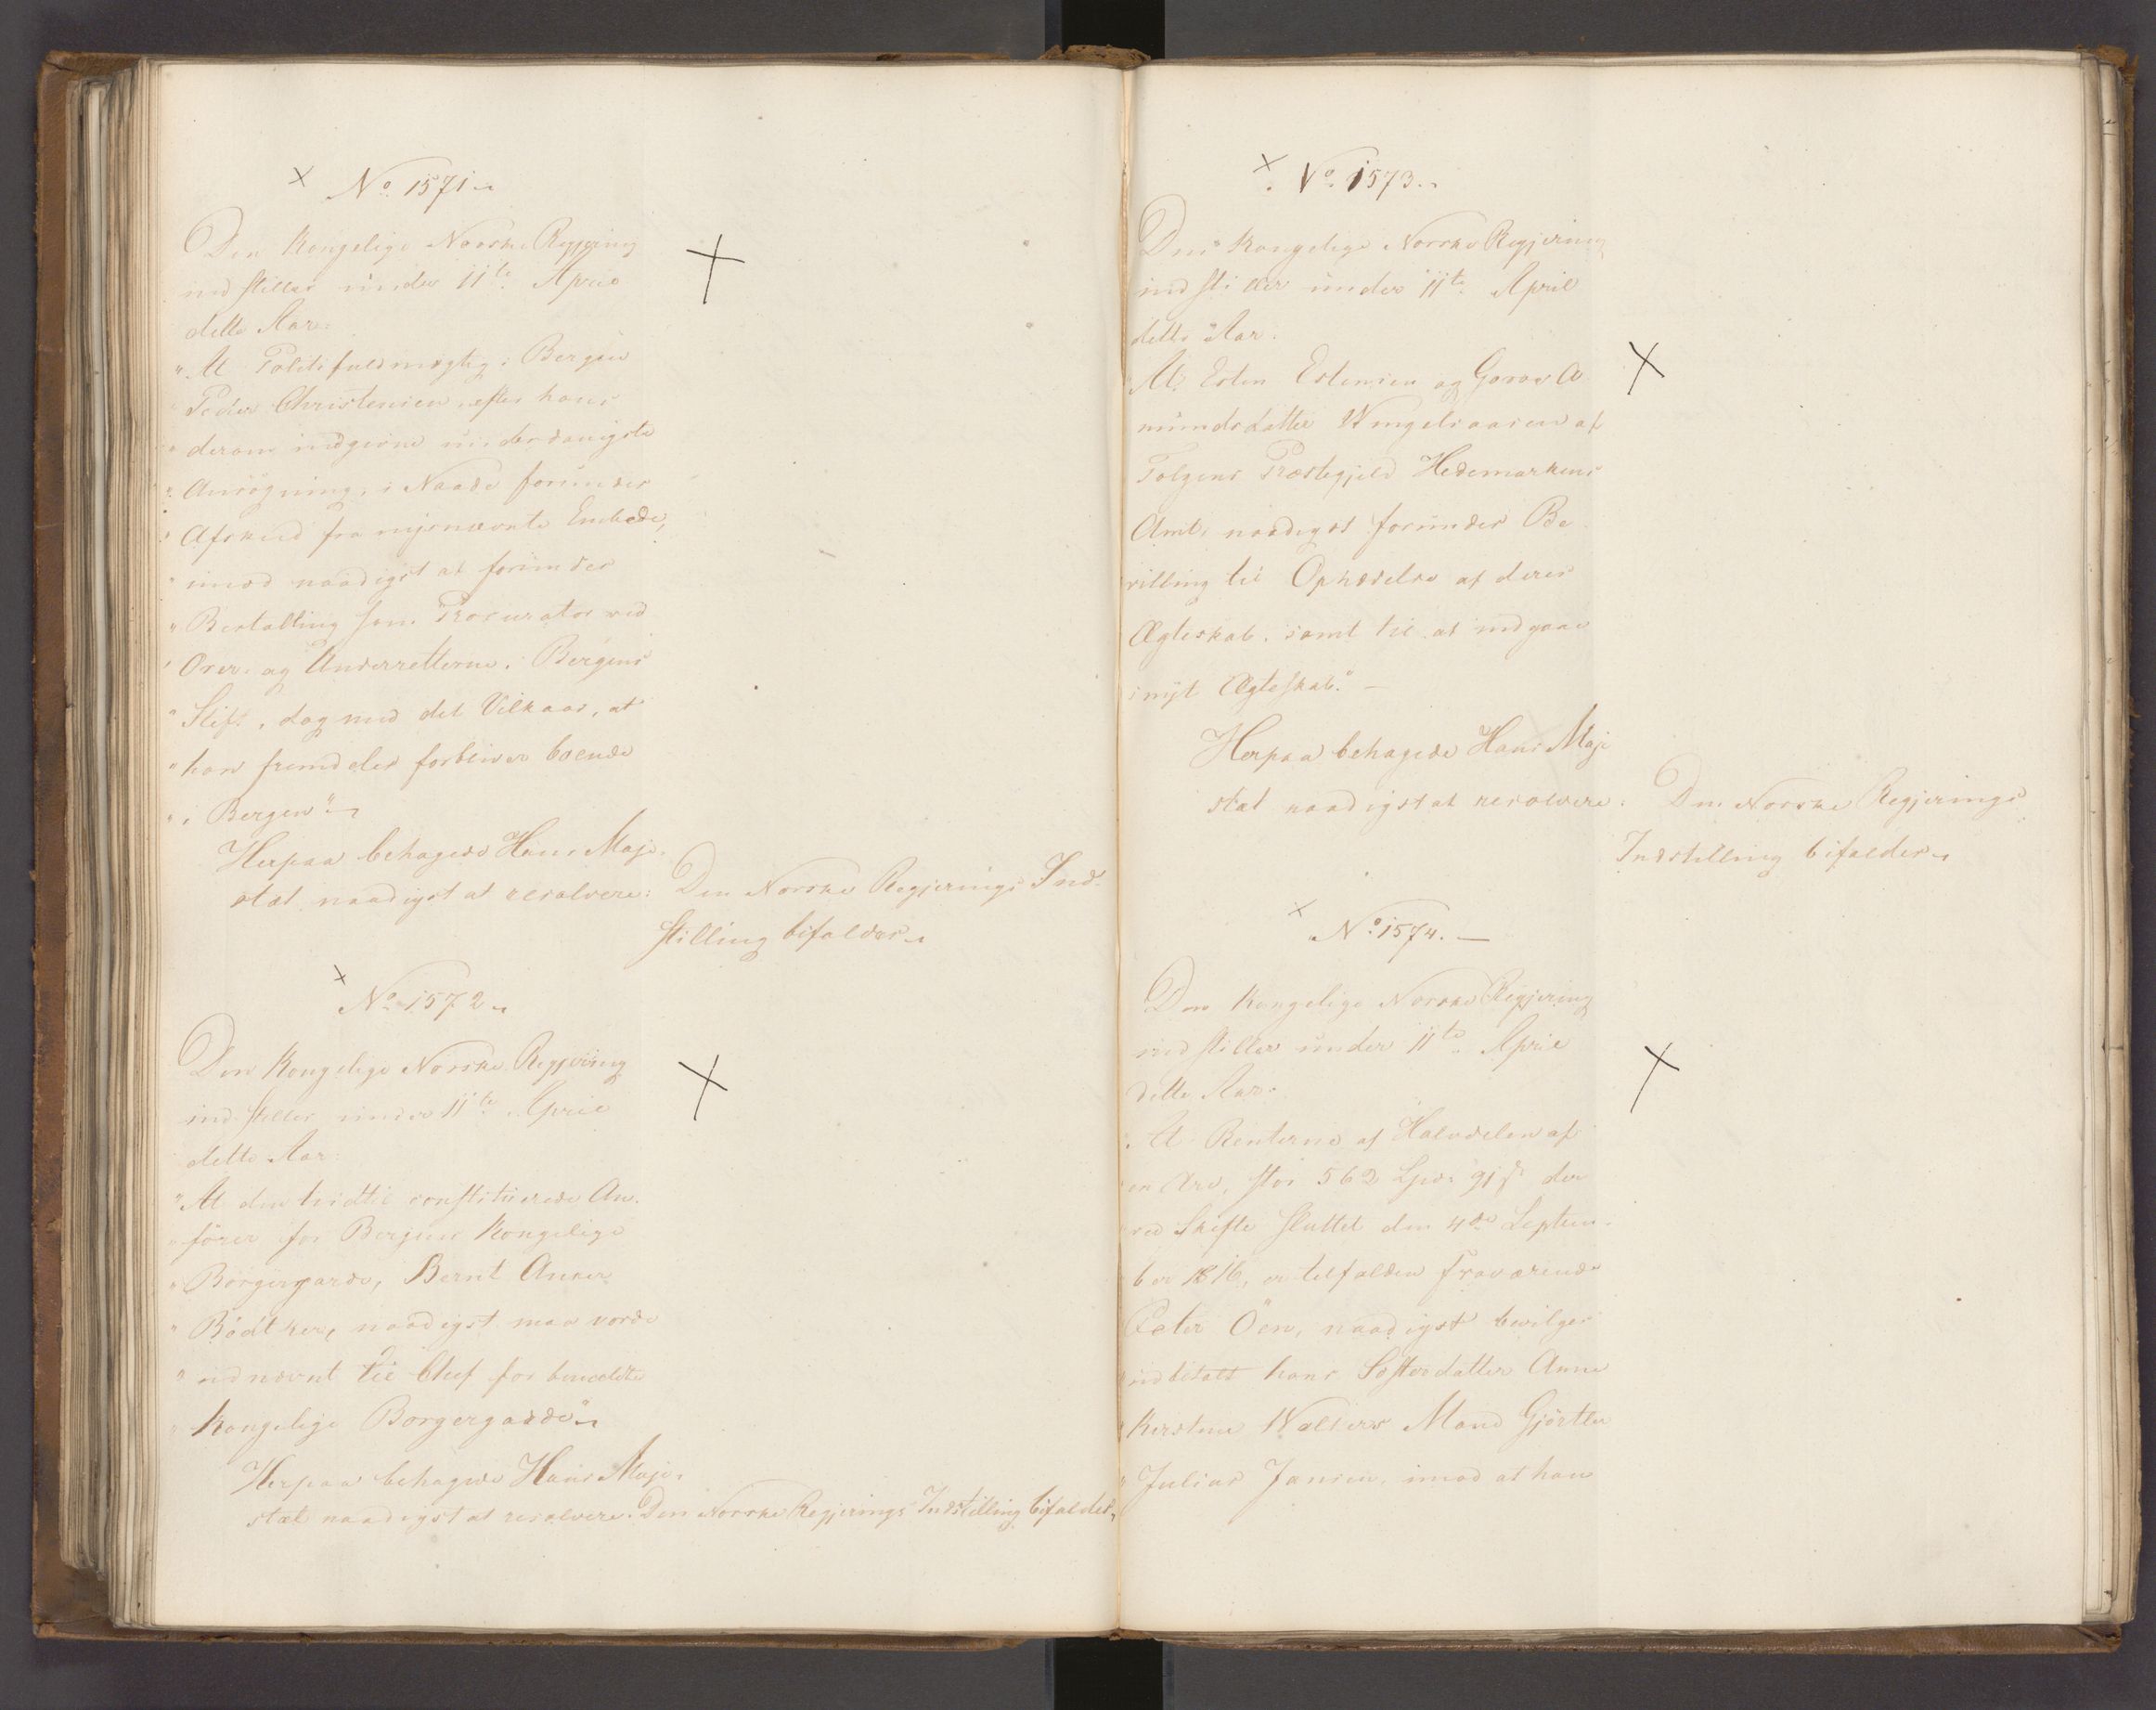 No 1571
Den Kongelige Norske Regjering
indstiller under 11te April
dette Aar:
"At Politifuldmægtig i Bergen
Peder Christensen, efter hans
"derom indgivne underdanigste
"Ansøgning, i Naade forundes
"Afskeed fra nysnævnte Embede,
"imod naadigst at forundes
"Bestalling som Procurator ved
"Over- og Underretterne i Bergens
"Stift, dog med det Vilkaar, at
"han fremdeles forbliver boende
"i Bergen"
Herpaa behagede Hans Maje-
stæt naadigst at resolvere: Den Norske Regjerings Ind-
stilling bifaldes
No 1572
Den Kongelige Norske Regjering
indstiller under 11te April
dette Aar:
"At den hidtil constituerede An-
"fører for Bergens Kongelige
"Borgergarde, Bernt Anker
"Bödtker, naadigst maa vorde
"udnævnt til Chef for bemeldte
"Kongelige Borgergarde"
Herpaa behagede Hans Maje-
stæt naadigst at resolvere: Den Norske Regjerings Indstilling bifaldes
No 1573
Den Kongelige Norske Regjering
indstiller under 11te April
dette Aar:
At Esten Estensen og Goroe A-
mundsdatter Wingelsaasen af
Tolgens Præstegjeld Hedemarkens
Amt, naadigst forundes Be-
villing til Ophævelse af deres
Ægteskab, samt til at indgaae
nyt Ægteskab." —
Herpaa behagede Hans Maje
stæt naadigst at resolvere: Den Norske Regjerings
Indstilling bifaldes
No 1574. —
Den Kongelige Norske Regjering
indstiller under 11te April
dette Aar:
At Renterne af Halvdelen af
en Arv, stor 562 Spd. 91 ß der
ved Skifte sluttet den 4de Septem-
ber 1816, er tilfalden fraværende
Peter Öen, naadigst bevilges
udbetalt hans Søsterdatter Anne
"Kirstine Wælders Mand Gjørtler
"Julius Jansen, imod at han